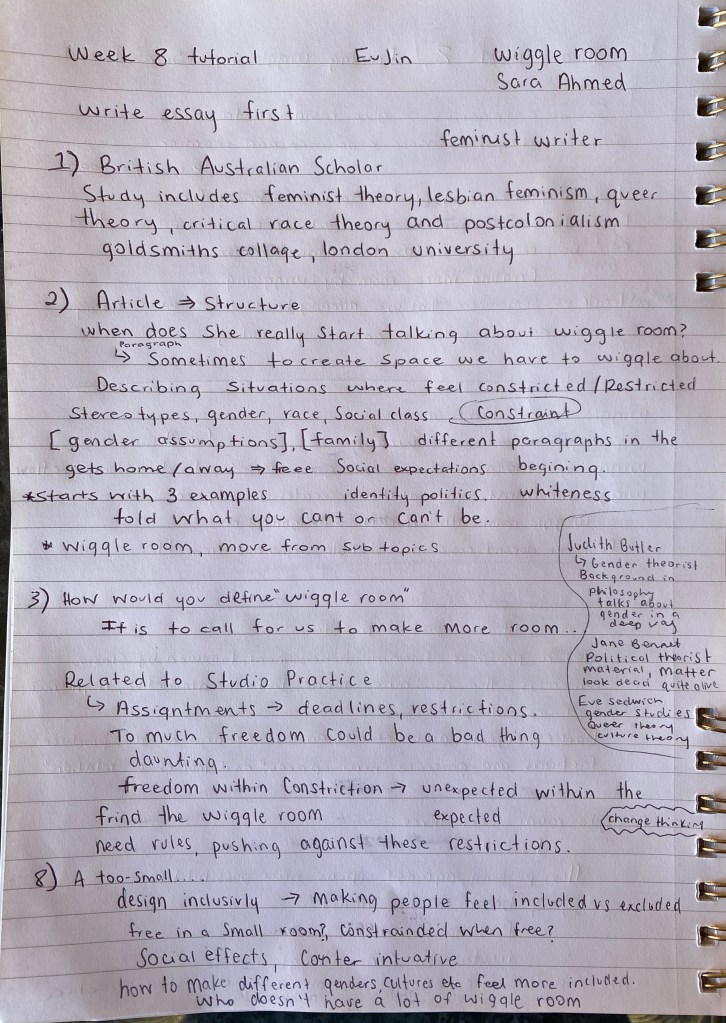 Week 8 tutorial EuJin wiggle room
Sara Ahmed
write essay first
feminist writer
1) British Australian Scholar
Study includes feminist theory, lesbian feminism, queer
theory, critical race theory and postcolonialism
goldsmiths collage, london university
2) Article ⇒ Structure
when does She really Start talking about wiggle room?
Paragraph
↳ Sometimes to create space we have to wiggle about.
Describing Situations where feel constricted/Restricted
Stereotypes, gender, race, Social class Constraint
[gender assumptions], [family] different paragraphs in the
gets home/away ⇒ Social expectations begining.
*Starts with 3 examples identity politics. whiteness
told what you cant or can't be.
* wiggle room, move from sub topics
3) How would you define "wiggle room"
It is to call for us to make more room...
Judith Butler
↳ Gender theorist
Background in
philosophy
talks about
gender in a
deep way
Jane Bennet
Political theorist
material, matter
look dead quite alive
Eve Sedwich
gender studies
Queer theory
culture theory
Related to Studio Practice
↳ Assigntments → deadlines, restrictions.
To much freedom could be a bad thing
daunting.
freedom within Constriction → unexpected within the
frind the wiggle room expected
change thinking
need rules, pushing against these restrictions.
8) A too-small....
design inclusivly → making people feel included vs excluded
free in a small room?, constrainded when free?
Social effects, Conter intuative
how to make different genders, cultures etc feel more included.
who doesn't have a lot of wiggle room